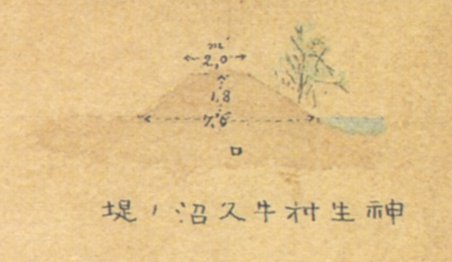 m
2,0
1.8
7.6
ロ
神生村牛久沼ノ堤